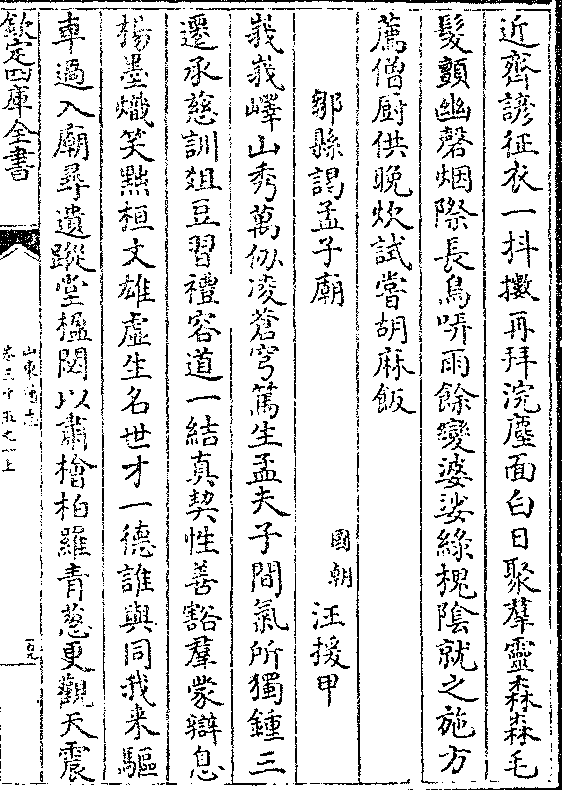 近齊諺征衣一抖擻再拜浣塵面白日聚羣靈森森毛
髮顫幽磬烟際長鳥哢雨餘變婆娑綠槐陰就之施方
薦僧厨供晚炊試嘗胡麻飯
鄒縣謁孟子廟
國朝 汪援甲
峩峩嶧山秀萬仭凌蒼穹篤生孟夫子間氣所獨鍾三
遷承慈訓俎豆習禮容道一結真契性善豁羣蒙辯息
楊墨熾笑黜桓文雄虛生名世才一德誰與同我来驅
車過入廟尋遺蹤堂楹閟以肅檜柏羅青葱更觀天震
欽定四庫全書
山東通志
卷三十五之一上